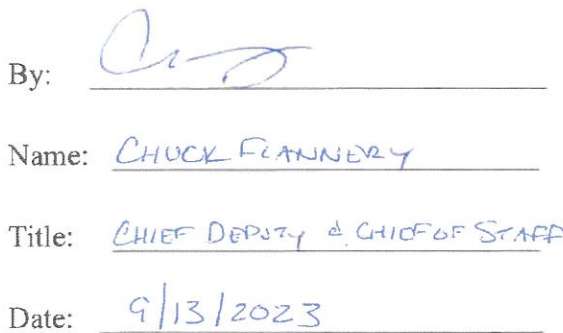 By:
Name: CHUCK FLANNERY
Title: CHIEF DEPUTY & CHIEF OF STAFF
Date: 9/13/2023